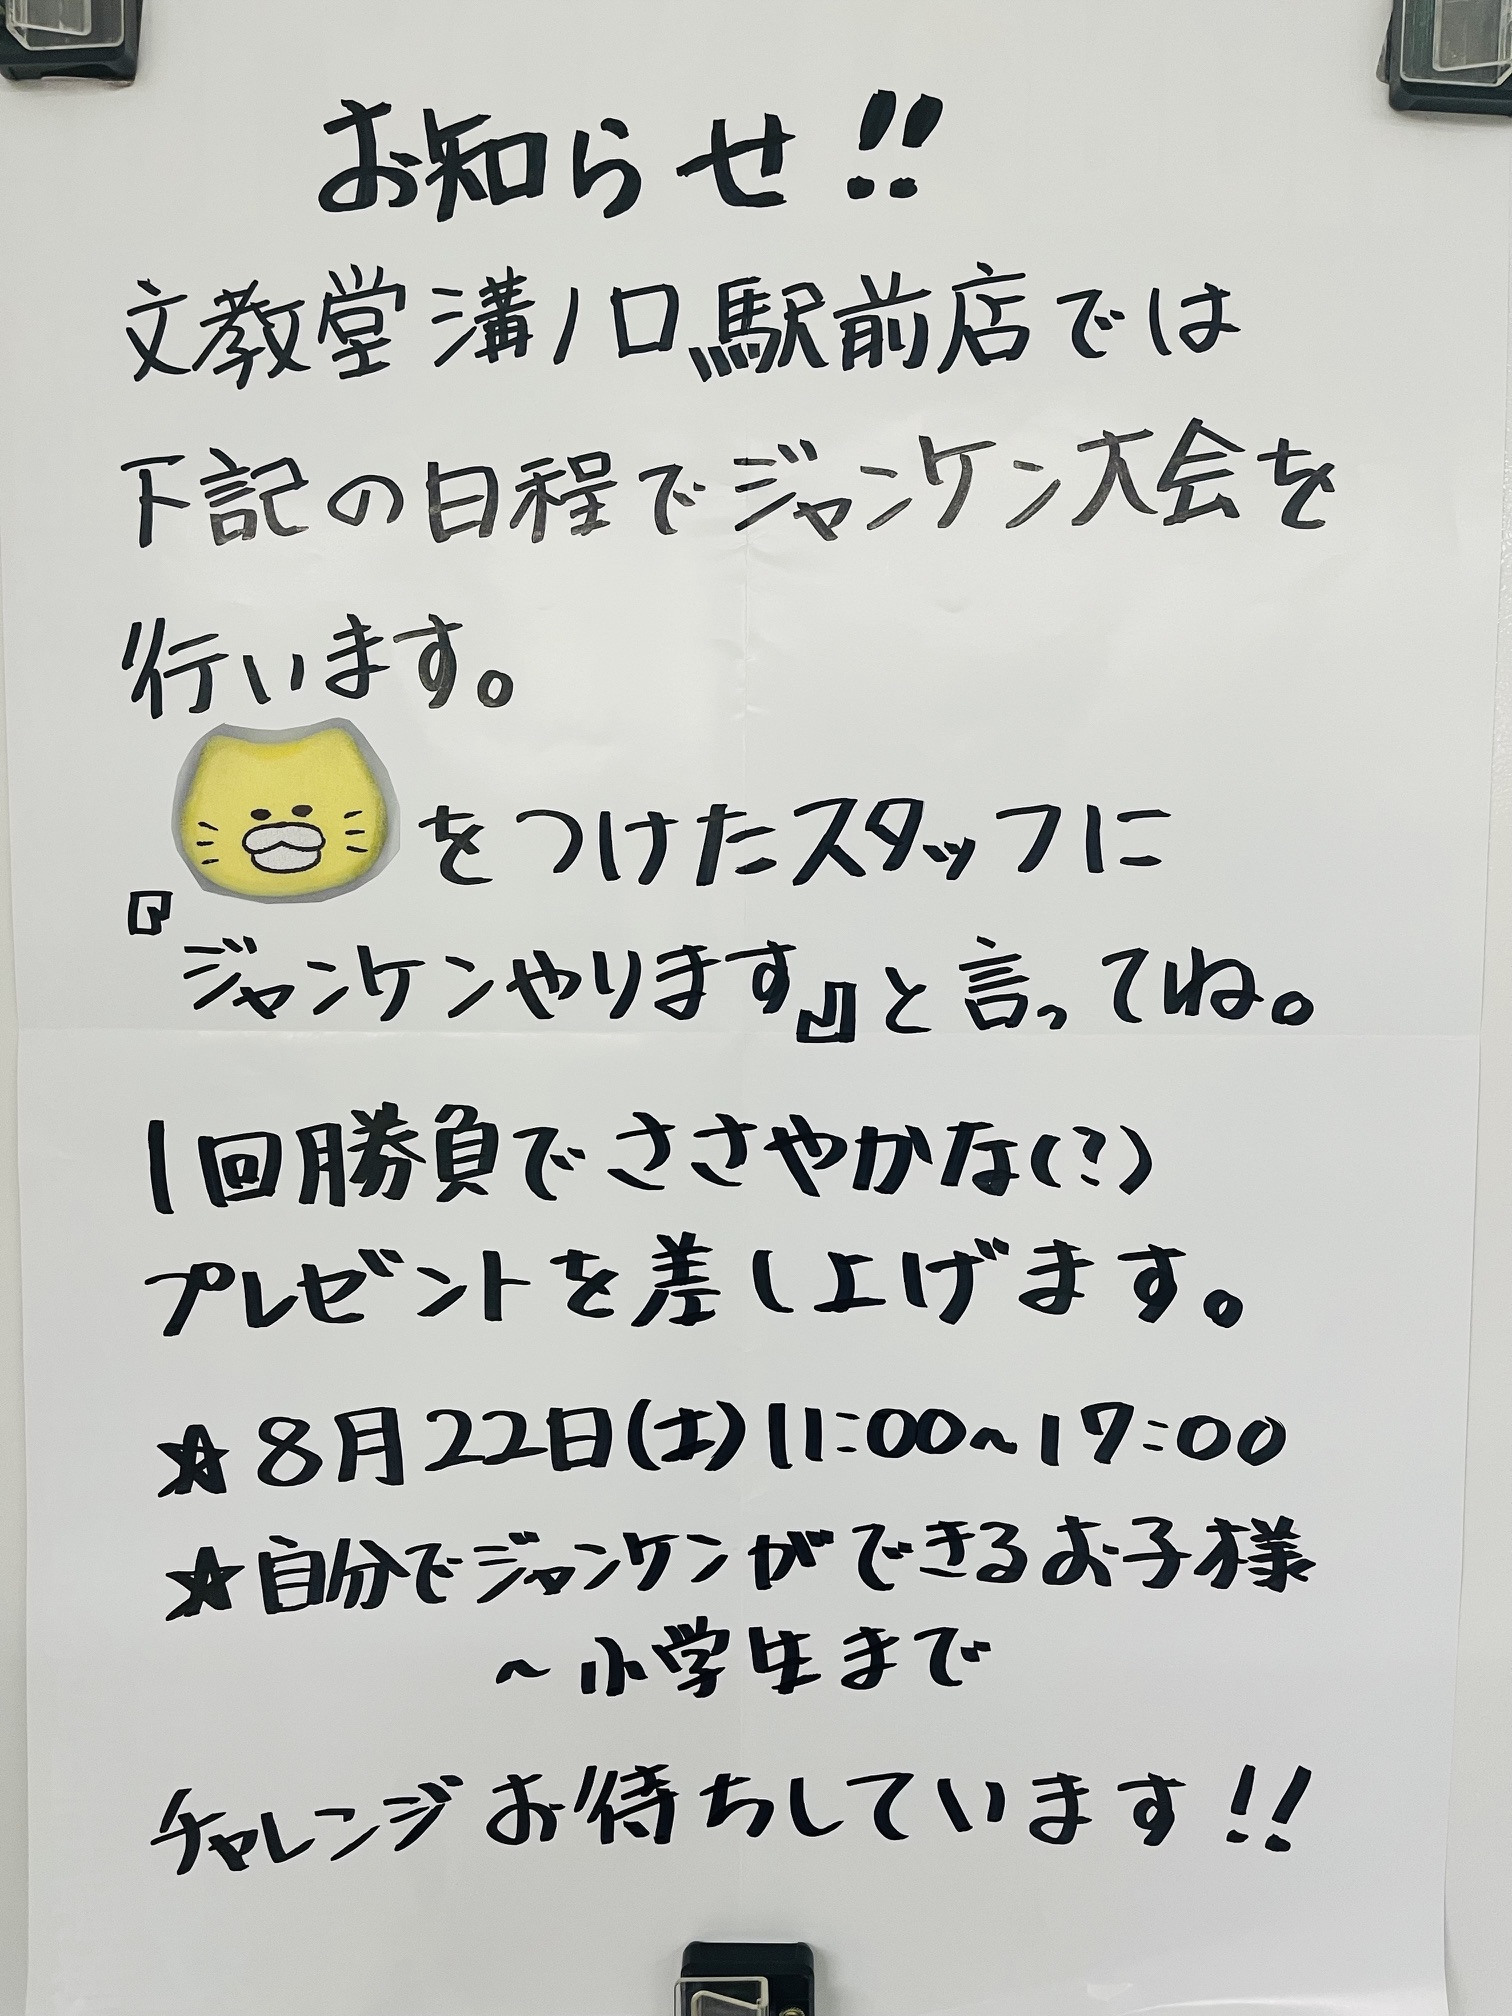 お知らせ!!
文教堂溝ノ口駅前店では
下記の日程でジャンケン大会を
行います。
をつけたスタッフに
『ジャンケンやります』と言ってね。
1回勝負でささやかな(?)
プレゼントを差し上げます。
☆8月22日(土)11:00~17:00
☆自分でジャンケンができるお子様
~小学生まで
チャレンジお待ちしています!!